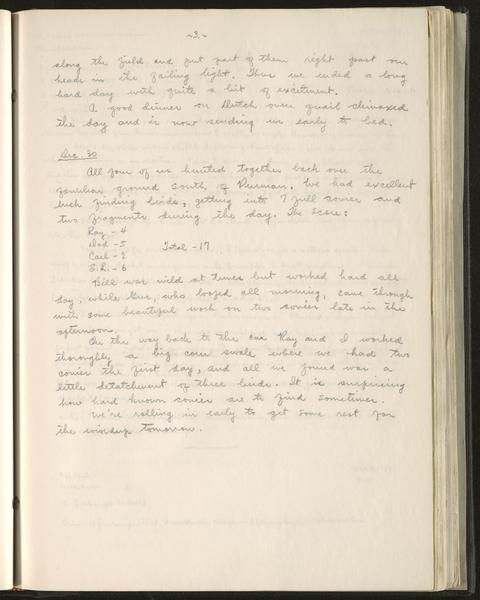 -3.-
along the field and put part of them right past our
heads in the failing light. Thus we ended a long
hard day with quite a bit of excitement.
A good dinner on Dutch oven quail climaxed
the day and is now sending us early to bed.
Dec. 30
All four of us hunted together back over the
familiar ground south of Burman. We had excellent
luck finding birds, getting into 7 full covies and
two fragments during the day. The score:
Ray - 4
Dad - 5 Total - 17
Carl - 2
S.L. - 6
Bill was wild at times but worked hard all
day, while Gus, who loafed all morning, came through
with some beautiful work on two covies late in the
afternoon.
On the way back to the car Ray and I worked
thoroughly a big corn swale where we had two
covies the first day, and all we found was a
little detatchment of three birds. It is surprising
how hard known covies are to find sometimes.
We're rolling in early to get some rest for
the windup tomorrow.